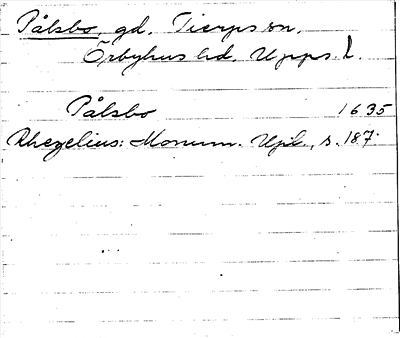 Pålsbo, gd, Tierps sn,
Örbyhus hd. Upps. l.
Pålsbo 1635
Rhezelius: Monum. Upl., s. 187.